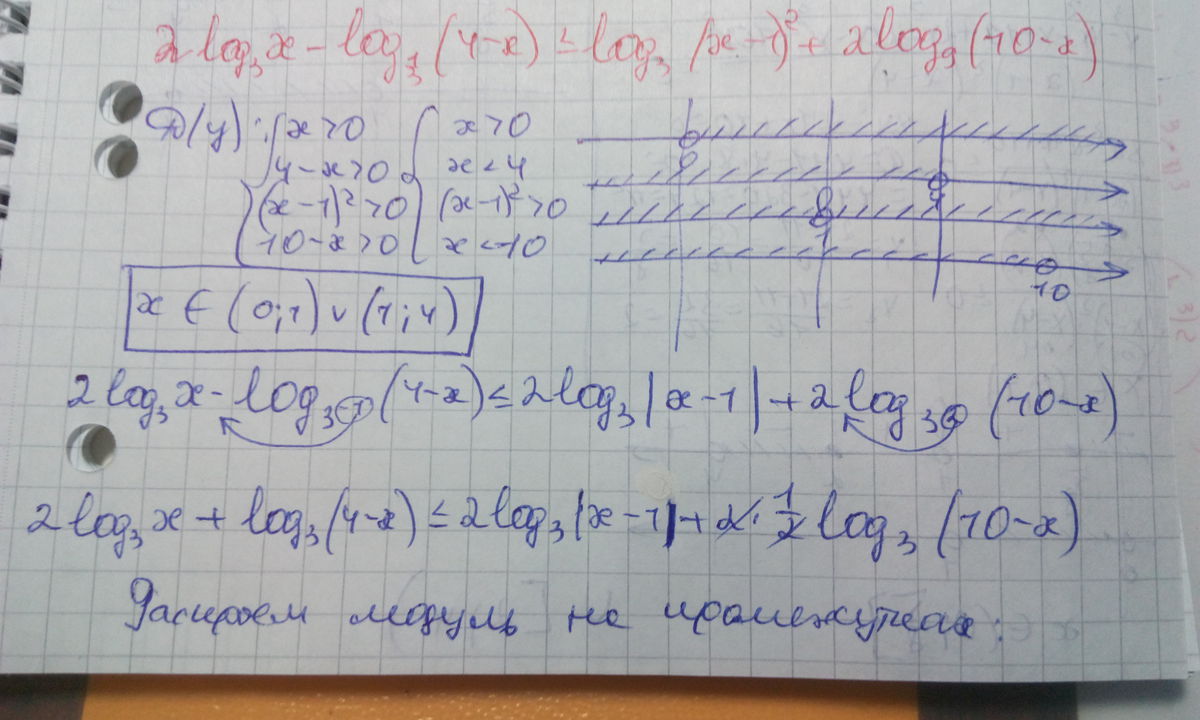 2log₃x - log_{1/3}(4-x) ≤ log₃(x-1)² + 2log₉(10-x)
D(y): { x>0 { x>0
4-x>0 x<4
(x-1)²>0 (x-1)²>0
10-x>0 x<10
0
4
1
10
x ∈ (0;1) ∪ (1;4)
2log₃x - log_{3^{-1}}(4-x) ≤ 2log₃|x-1| + 2log_{3^{2}}(10-x)
2log₃x + log₃(4-x) ≤ 2log₃|x-1| + 2·1/2 log₃(10-x)
Раскроем модуль на промежутках: